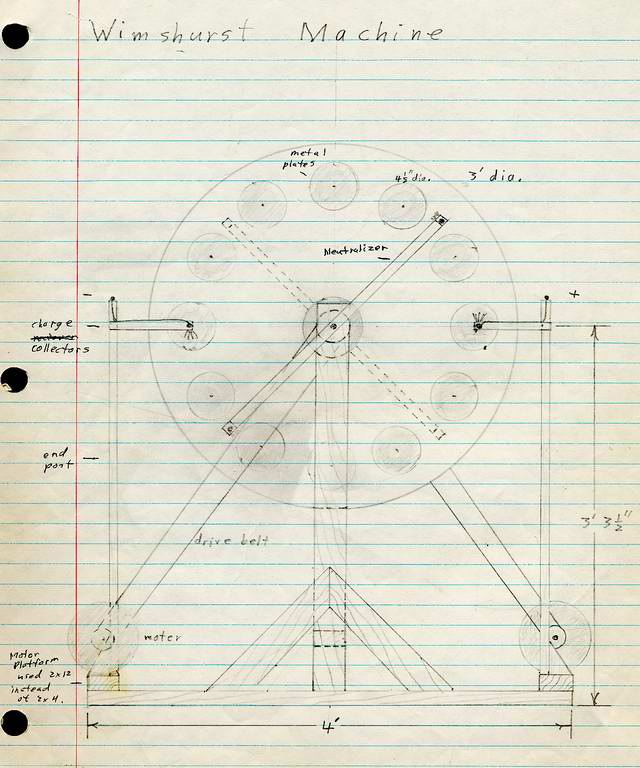 Wimshurst Machine
metal
plates
4½" dia.
3' dia.
Neutralizer
-
+
charge
collectors
end
post
3' 3½"
drive belt
moter
Motor
Platform
used 2x12
instead
of 2x4.
4'